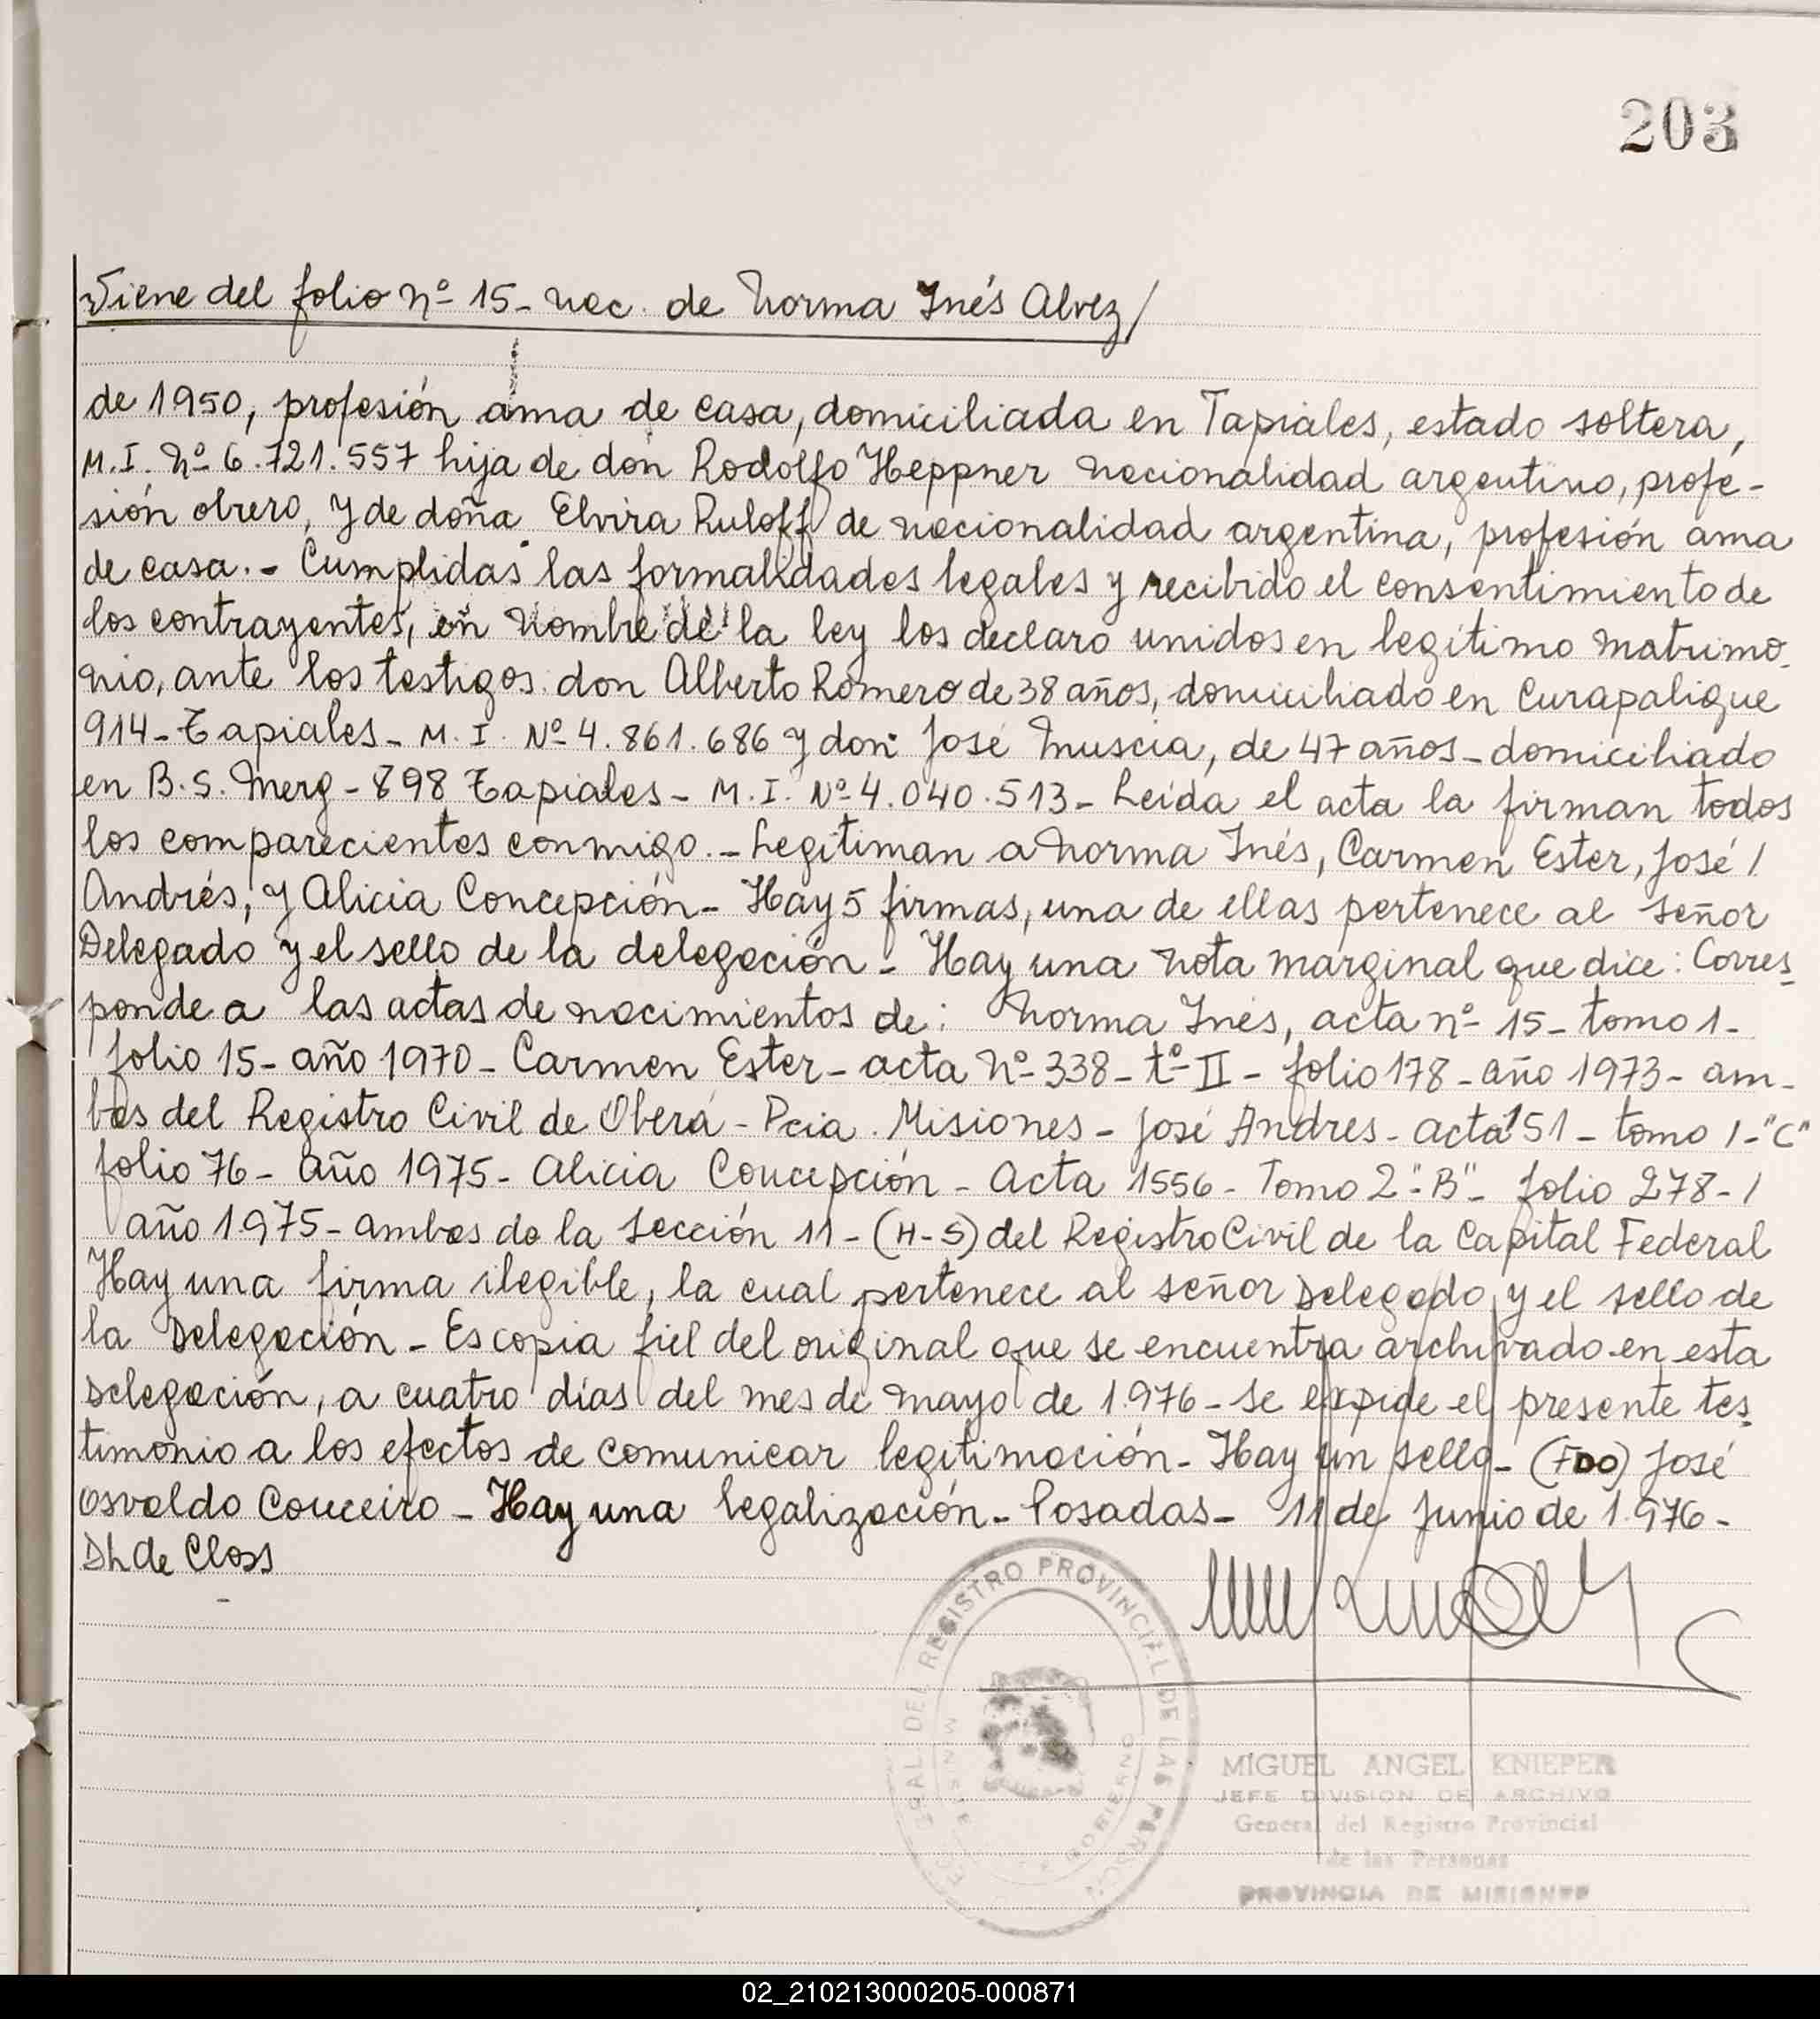 203
Viene del folio nº 15- nac. de Norma Inés Alvez/
de 1950, profesión ama de casa, domiciliada en Tapiales, estado soltera,
M.I. Nº 6.721.557 hija de don Rodolfo Heppner nacionalidad argentino, profe-
sión obrero, y de doña Elvira Ruloff de nacionalidad argentina, profesión ama
de casa.- Cumplidas las formalidades legales y recibido el consentimiento de
los contrayentes, en nombre de la ley los declaro unidos en legítimo matrimo-
nio, ante los testigos don Alberto Romero de 38 años, domiciliado en Curapaligue
914- Tapiales- M.I. Nº 4.861.686 y don José Muscia, de 47 años- domiciliado
en B.S. Merg- 898 Tapiales- M.I. Nº 4.040.513- Leída el acta la firman todos
los comparecientes conmigo.- Legitiman a Norma Inés, Carmen Ester, José /
Andrés, y Alicia Concepción- Hay 5 firmas, una de ellas pertenece al señor
Delegado y el sello de la delegación- Hay una nota marginal que dice: Corres-
ponde a las actas de nacimientos de: Norma Inés, acta nº 15- tomo 1-
folio 15- año 1970- Carmen Ester- acta Nº 338- tº II- folio 178- año 1973- am-
bas del Registro Civil de Oberá- Pcia. Misiones- José Andres- acta 151- tomo 1-"C"
folio 76- año 1975- Alicia Concepción- Acta 1556- Tomo 2"B"- folio 278- /
año 1.975- ambas de la sección 11- (H-S) del Registro Civil de la Capital Federal
Hay una firma ilegible, la cual pertenece al señor Delegado y el sello de
la Delegación- Es copia fiel del original que se encuentra archivado en esta
Delegación, a cuatro días del mes de mayo de 1.976- Se expide el presente tes-
timonio a los efectos de comunicar legitimación- Hay un sello- (FDO) José
Osvaldo Couceiro- Hay una legalización- Posadas- 11 de Junio de 1.976-
Dh de Closs
REGISTRO PROVINCIAL DE LAS PERSONAS
GOBIERNO
MIGUEL ANGEL KNIEPER
JEFE DIVISION DE ARCHIVO
General del Registro Provincial
de las Personas
PROVINCIA DE MISIONES
02_210213000205-000871